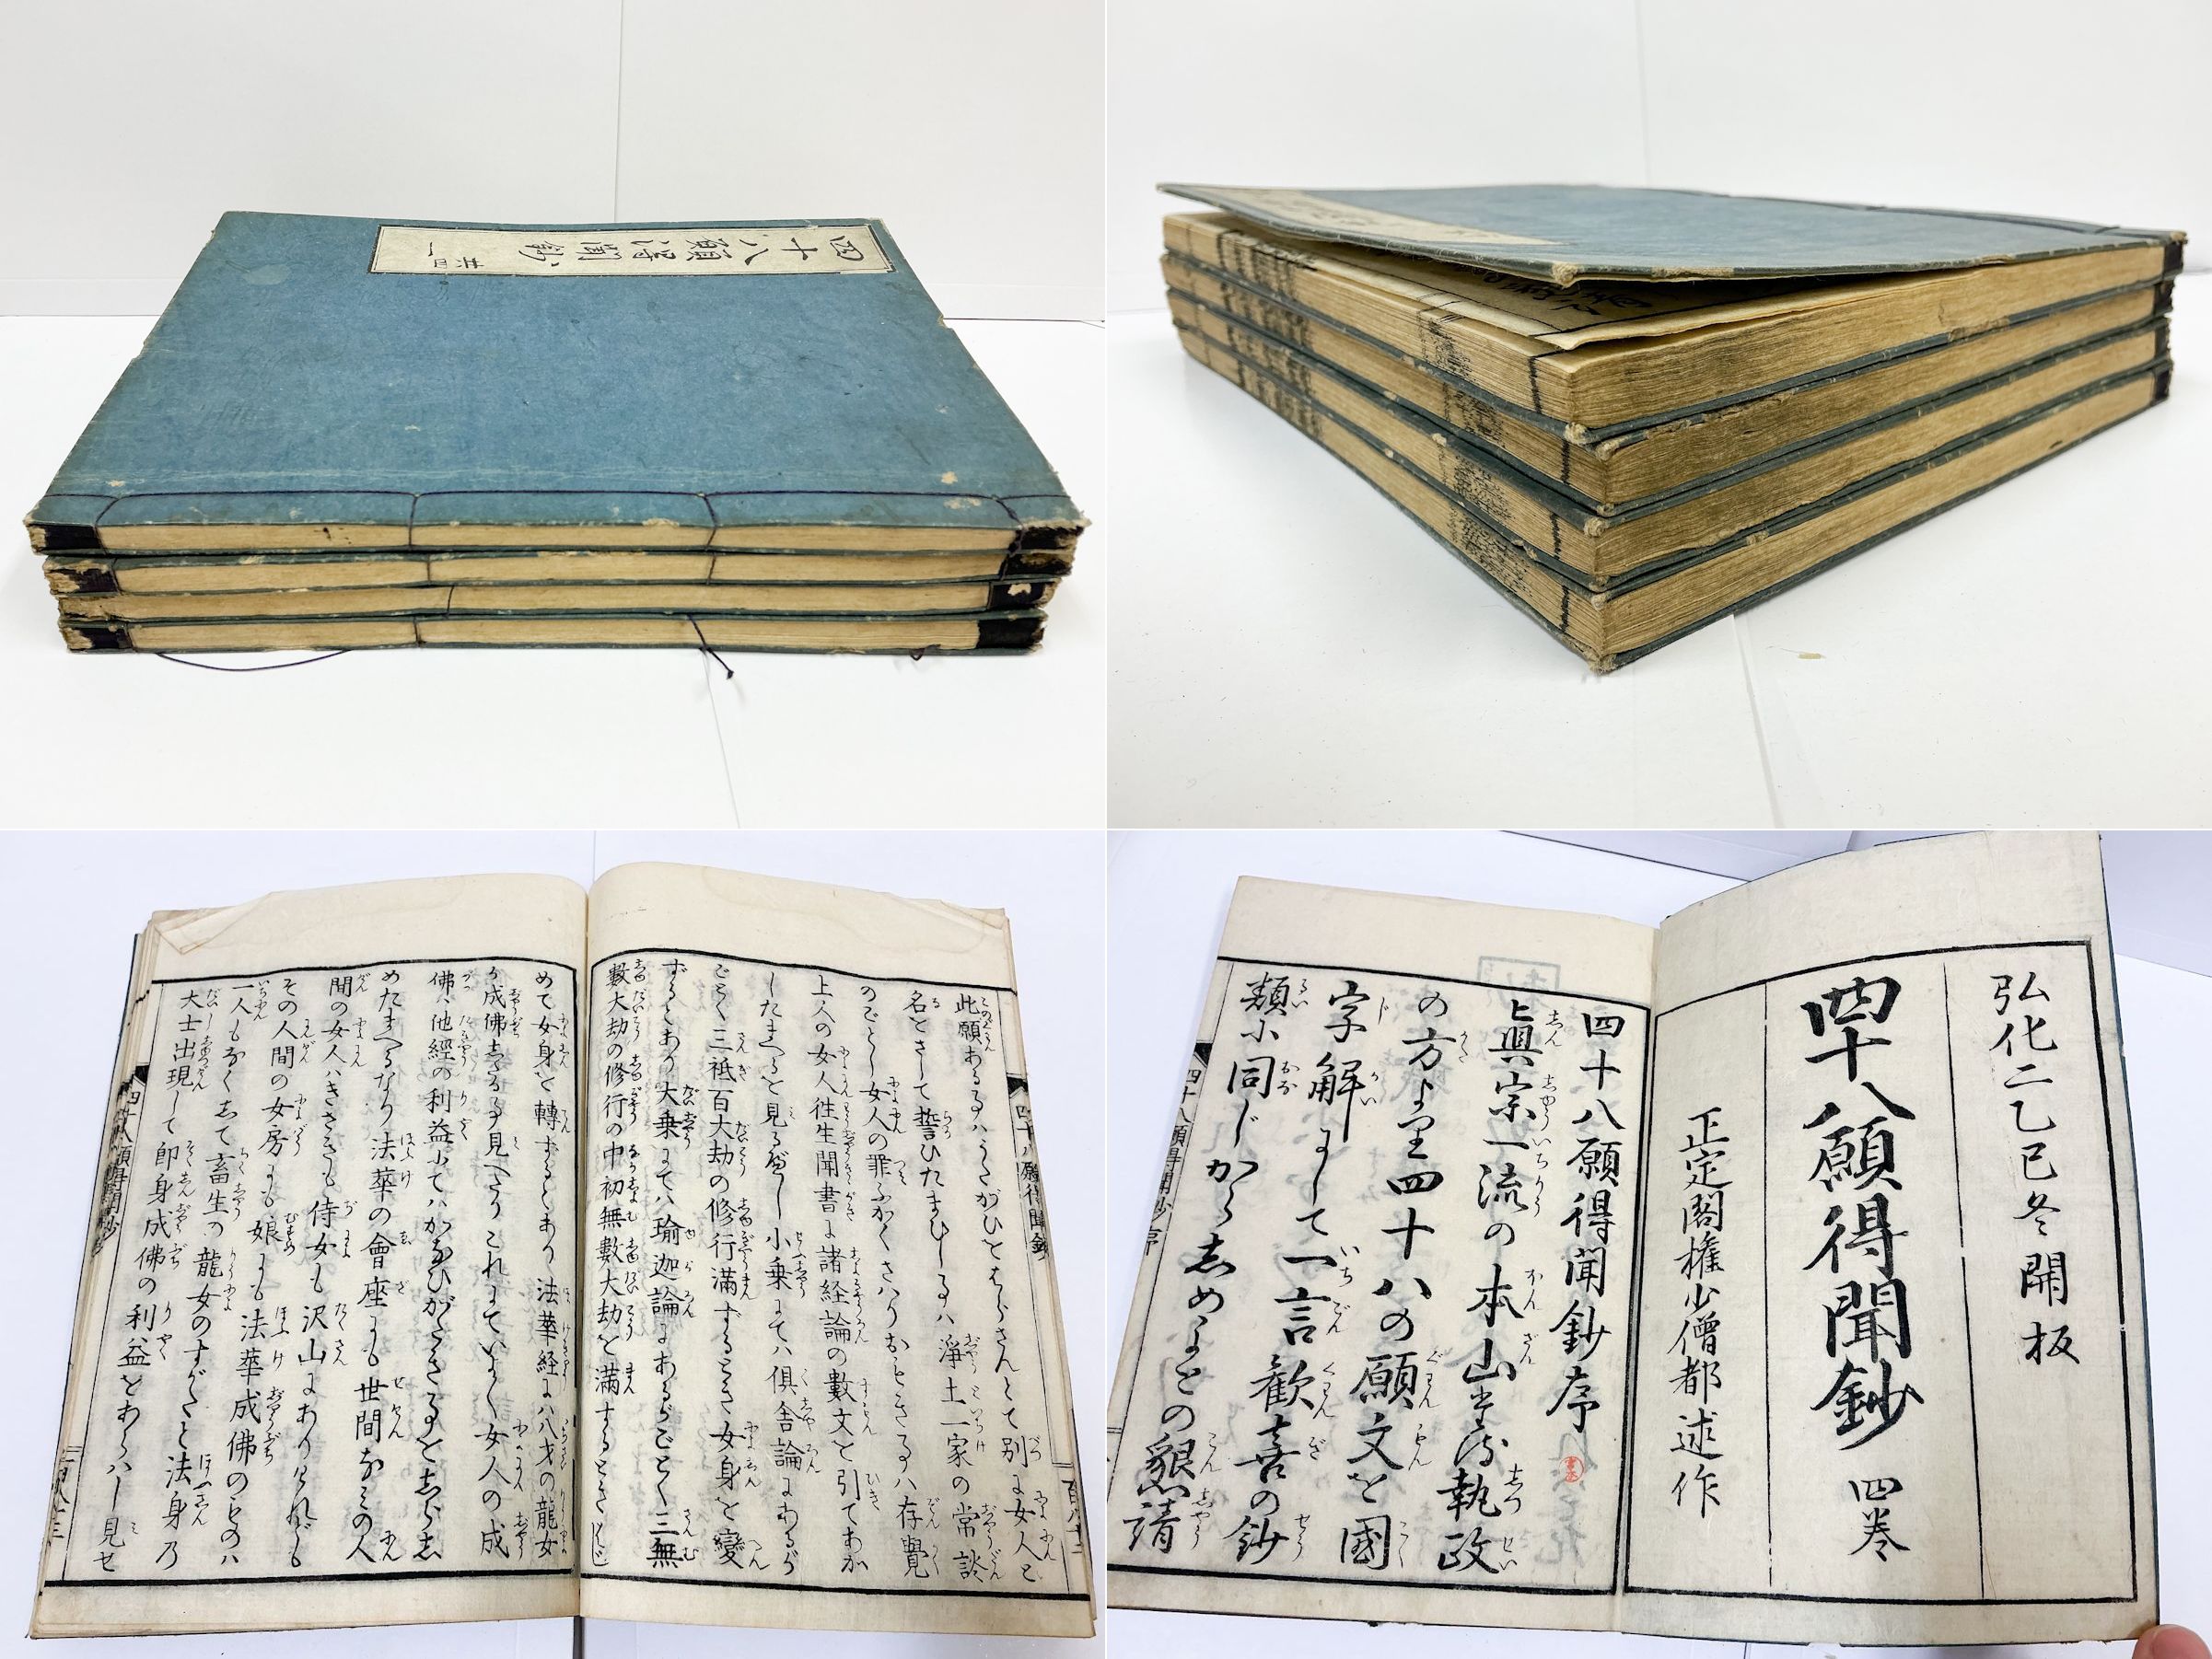 四十八願得聞鈔
共四
一
此願あるヿハうたがひとをらさんとて別に女人と
名をさして誓ひたまひしヿハ浄土一家の常談
のごとし女人の罪ふかくさハりおときヿハ存覺
上人の女人徃生聞書に諸経論の數文を引てあか
したまへるを見るべし小乗にてハ倶舎論にあるが
ごとく三祇百大劫の修行滿ずるとき女身を變
ずるとあり大乗にてハ瑜迦論にあるがごとく三無
數大劫の修行の中初無數大劫を滿するときはじ
めて女身を轉ずるとあり法華経に八才の龍女
が成佛するヿ見へたりこれにていよ〱女人の成
佛ハ他經の利益にてハかなひがたきヿをしらし
めたまへるなり法華の會座にも世間なみの人
間の女人ハきさきも侍女も沢山にありけれども
その人間の女房にも娘にも法華成佛のものハ
一人もなくして畜生の龍女のすがたと法身乃
大士出現して即身成佛の利益をあらハし見せ
四十八願得聞鈔
弘化二乙巳冬開板
四十八願得聞鈔 四巻
正定閣権少僧都述作
四十八願得聞鈔序
眞宗一流の本山執政
の方より四十八の願文を國
字解にして一言歓喜の鈔
類に同じからしめよとの懇請
四十八願得聞鈔序